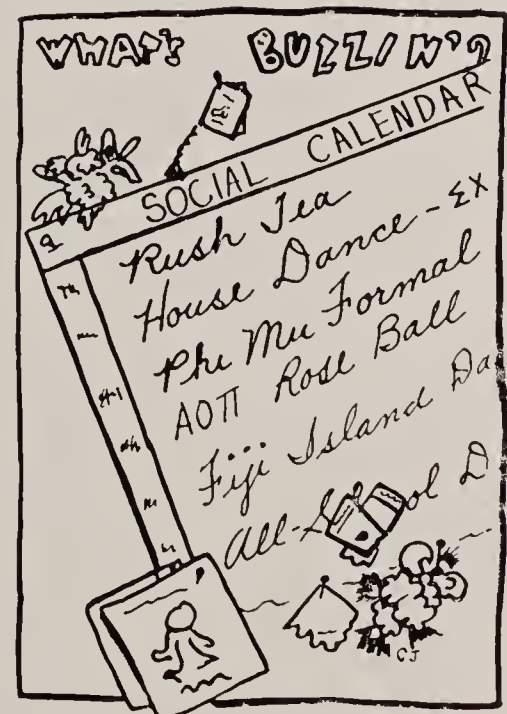 WHAT'S BUZZIN'?
SOCIAL CALENDAR
Rush Tea
House Dance - ΣX
Phi Mu Formal
AOΠ Rose Ball
Fiji Island Da
All-School D
CJ